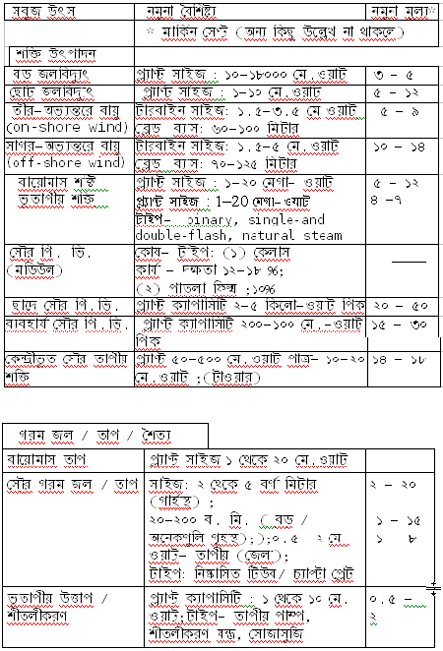 সবুজ উৎস নমুনা বৈশিষ্ট্য নমুনা মূল্য*
* মার্কিন সেন্ট (অন্য কিছু উল্লেখ না থাকলে)
শক্তি উৎপাদন
বড জলবিদ্যুৎ প্ল্যাণ্ট সাইজ : ১০-১৮০০০ মে.ওয়াট ৩ - ৫
ছোট জলবিদ্যুৎ প্ল্যাণ্ট সাইজ : ১-১০ মে.ওয়াট ৫ - ১২
তীর-অভ্যন্তরে বায়ু টারবাইন সাইজ: ১.৫-৩.৫ মে.ওয়াট ৫ - ৯
(on-shore wind) ব্লেড ব্যাস: ৬০-১০০ মিটার
সাগর-অভ্যন্তরে বায়ু টারবাইন সাইজ: ১.৫-৫ মে.ওয়াট ১০ - ১৪
(off-shore wind) ব্লেড ব্যাস: ৭০-১২৫ মিটার
বায়োমাস শক্তি প্ল্যাণ্ট সাইজ : ১-২০ মেগা- ওয়াট ৫ - ১২
ভূতাপীয় শক্তি প্ল্যাণ্ট সাইজ : 1–20 মেগা-ওয়াট ৪ -৭
টাইপ- binary, single-and
double-flash, natural steam
সৌর পি. ভি. কোষ- টাইপ: (১) কেলাস
(মডিউল) কার্য - দক্ষতা ১২-১৮ %;
(২) পাতলা ফিল্ম :10%
ছাদে সৌর পি.ভি. প্ল্যাণ্ট ক্যাপাসিটি ২-৫ কিলো-ওয়াট পিক ২০ - ৫০
ব্যবহার্য সৌর পি.ভি. প্ল্যাণ্ট ক্যাপাসিটি ২০০-১০০ মে.-ওয়াট ১৫ - ৩০
পিক
কেন্দ্রীভূত সৌর তাপীয় প্ল্যাণ্ট ৫০-৫০০ মে.ওয়াট পাত্র- ১০-২০ ১৪ - ১৮
শক্তি মে.ওয়াট ;(টাওয়ার)
গরম জল / তাপ / শৈত্য
বায়োমাস তাপ প্ল্যাণ্ট সাইজ ১ থেকে ২০ মে.ওয়াট
সৌর গরম জল / তাপ সাইজ: ২ থেকে ৫ বর্গ মিটার ২ - ২০
(গার্হস্থ) ;
২০-২০০ ব. মি. ( বড / ১ - ১৫
অনেকগুলি গৃহস্থ););০.৫ ২ মে ১ ৮
ওয়াট- তাপীয় (জেল);
টাইপ: নিষ্কাসিত টিউব/ চ্যাপ্টা প্লেট
ভূতাপীয় উত্তাপ / প্ল্যাণ্ট ক্যাপাসিটি : ১ থেকে ১০ মে. ০.৫ -
শীতলীকরণ ওয়াট;টাইপ- তাপীয় পাম্প, ২
শীতলীকরণ যন্ত্র, সোজাসুজি